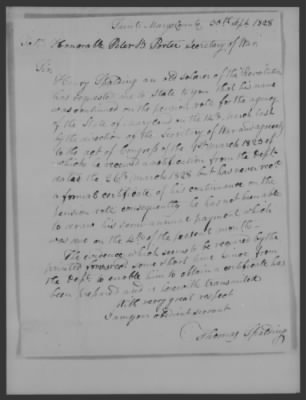 Saint Mary's County 30th Sept 1828
To the Honorable Peter B. Porter Secretary of War
Sir,
Henry Spalding an old soldier of the Revolution
has requested me to State to you that his name
was continued on the pension role for the agency
of the State of maryland on the 12th March last
by the direction of the Secretary of War and agreeably
to the act of Congress of the 1st march 1823 of
which he received a notification from the Dept
dated the 26th march 1828 but has never recd
a formal certificate of his continuance on the
pension role consequently he has not been able
to receive his semi annual payment which
was due on the 4th of the present month
The evidence which seems to be required by the
printed forms recd some short time since from
the Dept to enable him to obtain a certificate has
been prepared and is herewith transmitted
With very great respect
I am your obedient servant
Thomas Spalding